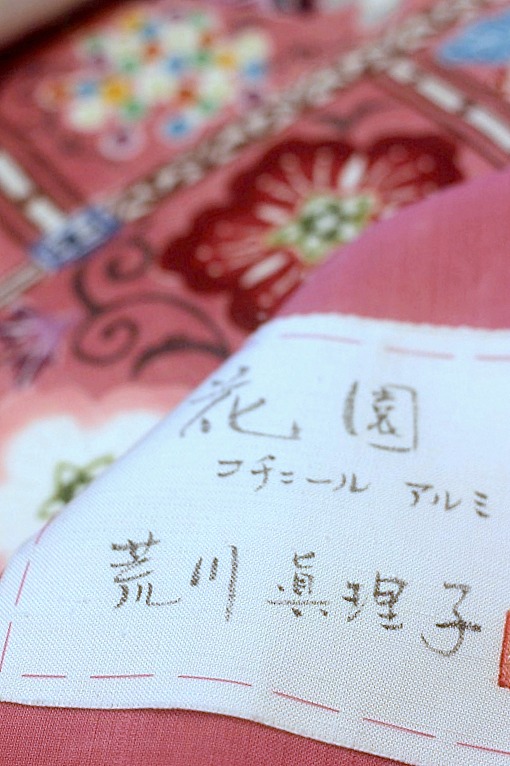 花園
コチニール アルミ
荒川眞理子